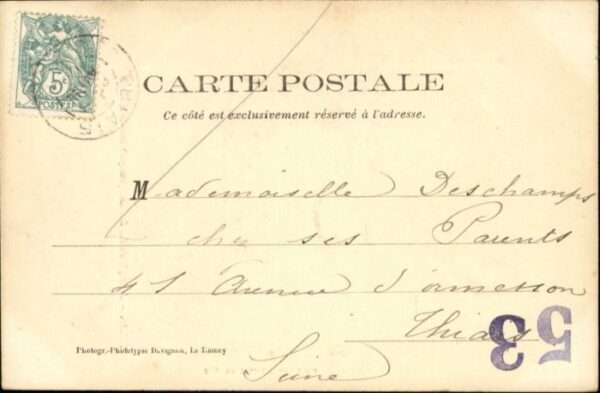 5c
POSTES
THIAIS
CARTE POSTALE
Ce côté est exclusivement réservé à l'adresse.
Mademoiselle Deschamps
chez ses Parents
41 Avenue d'ormesson
Thiais
Seine
53
Photogr.-Phototypie Davignon, Le Raincy